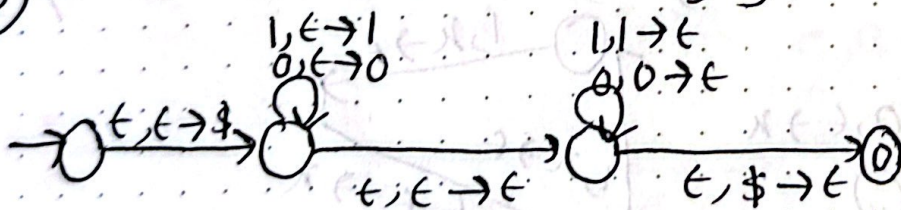 1,ϵ→1
0,ϵ→0
1,1→ϵ
0,0→ϵ
ϵ,ϵ→$
ϵ,ϵ→ϵ
ϵ,$→ϵ